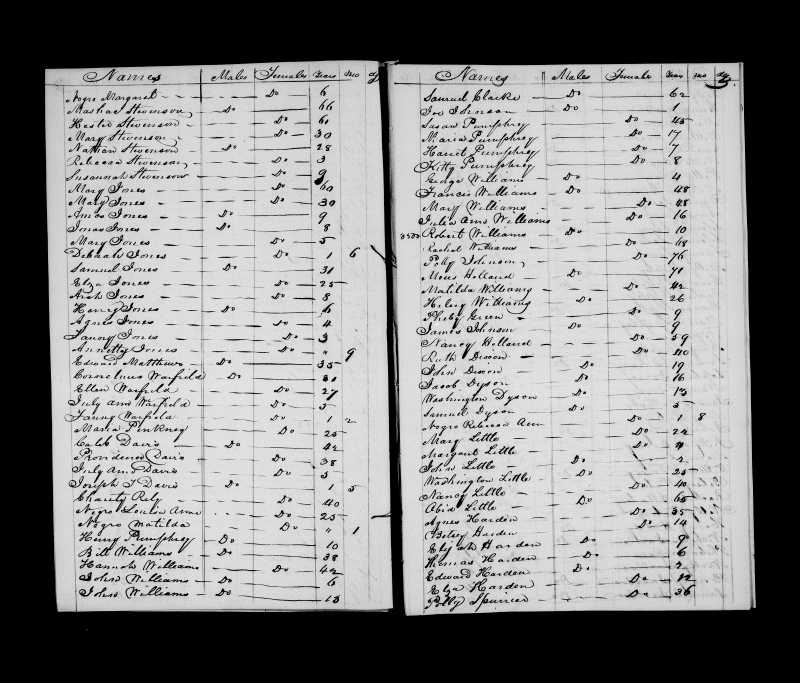 Names Males Females Years mo dy
Negro Margaret Do 6
Mashac Stevenson Do 66
Hester Stevenson Do 61
Mary Stevenson Do 30
Nathan Stevenson Do 28
Rebecca Stevenson Do 3
Susannah Stevenson Do 9
Mary Jones Do 60
Mary Jones Do 30
Amos Jones Do 9
Jonas Jones Do 8
Mary Jones Do 5
Deborah Jones Do 1 6
Samuel Jones Do 31
Elza Jones Do 25
Arch Jones Do 8
Henry Jones Do 6
Agnes Jones Do 4
Fanny Jones Do 3
Annetty Jones Do " 9
Edward Matthews Do 35
Cornelius Warfield Do 31
Ellen Warfield Do 27
July Ann Warfield Do 5
Fanny Warfield Do 1 2
Maria Pinkney Do 25
Caleb Davis Do 42
Providence Davis Do 38
July Ann Davis Do 5
Joseph T Davis Do 1 5
Charity Rily Do 40
Negro Louisa Anne Do 25
Negro Matilda Do " 1
Henry Pumphrey Do 10
Bill Williams Do 38
Hannah Williams Do 42
John Williams Do 6
John Williams Do 13
Names Males Females Years mo dys
Samuel Clarke Do 62
Joe Johnson Do 1
Susan Pumphrey Do 45
Maria Pumphrey Do 17
Hariet Pumphrey Do 7
Kitty Pumphrey Do 8
George Williams Do 4
Francis Williams Do 48
Mary Williams Do 48
Julia Ann Williams Do 16
Robert Williams Do 10
Rachel Williams Do 48
Polly Johnson Do 76
Moses Holland Do 71
Matilda Williams Do 42
Hilery Williams Do 26
Pheby Green Do 9
James Johnson Do 9
Nancy Holland Do 39
Ruth Dixon Do 40
John Dixon Do 19
Jacob Dyson Do 16
Washington Dyson Do 13
Samuel Dyson Do 5
Negro Rebecca Ann Do 1 8
Mary Little Do 24
Margaret Little Do 4
John Little Do 2
Washington Little Do 25
Nancy Little Do 40
Abid Little Do 65
Agnes Harden Do 35
Betsey Harden Do 14
Elijah Harden Do 9
Thomas Harden Do 6
Edward Harden Do 2
Elza Harden Do 12
Polly Spurrier Do 36